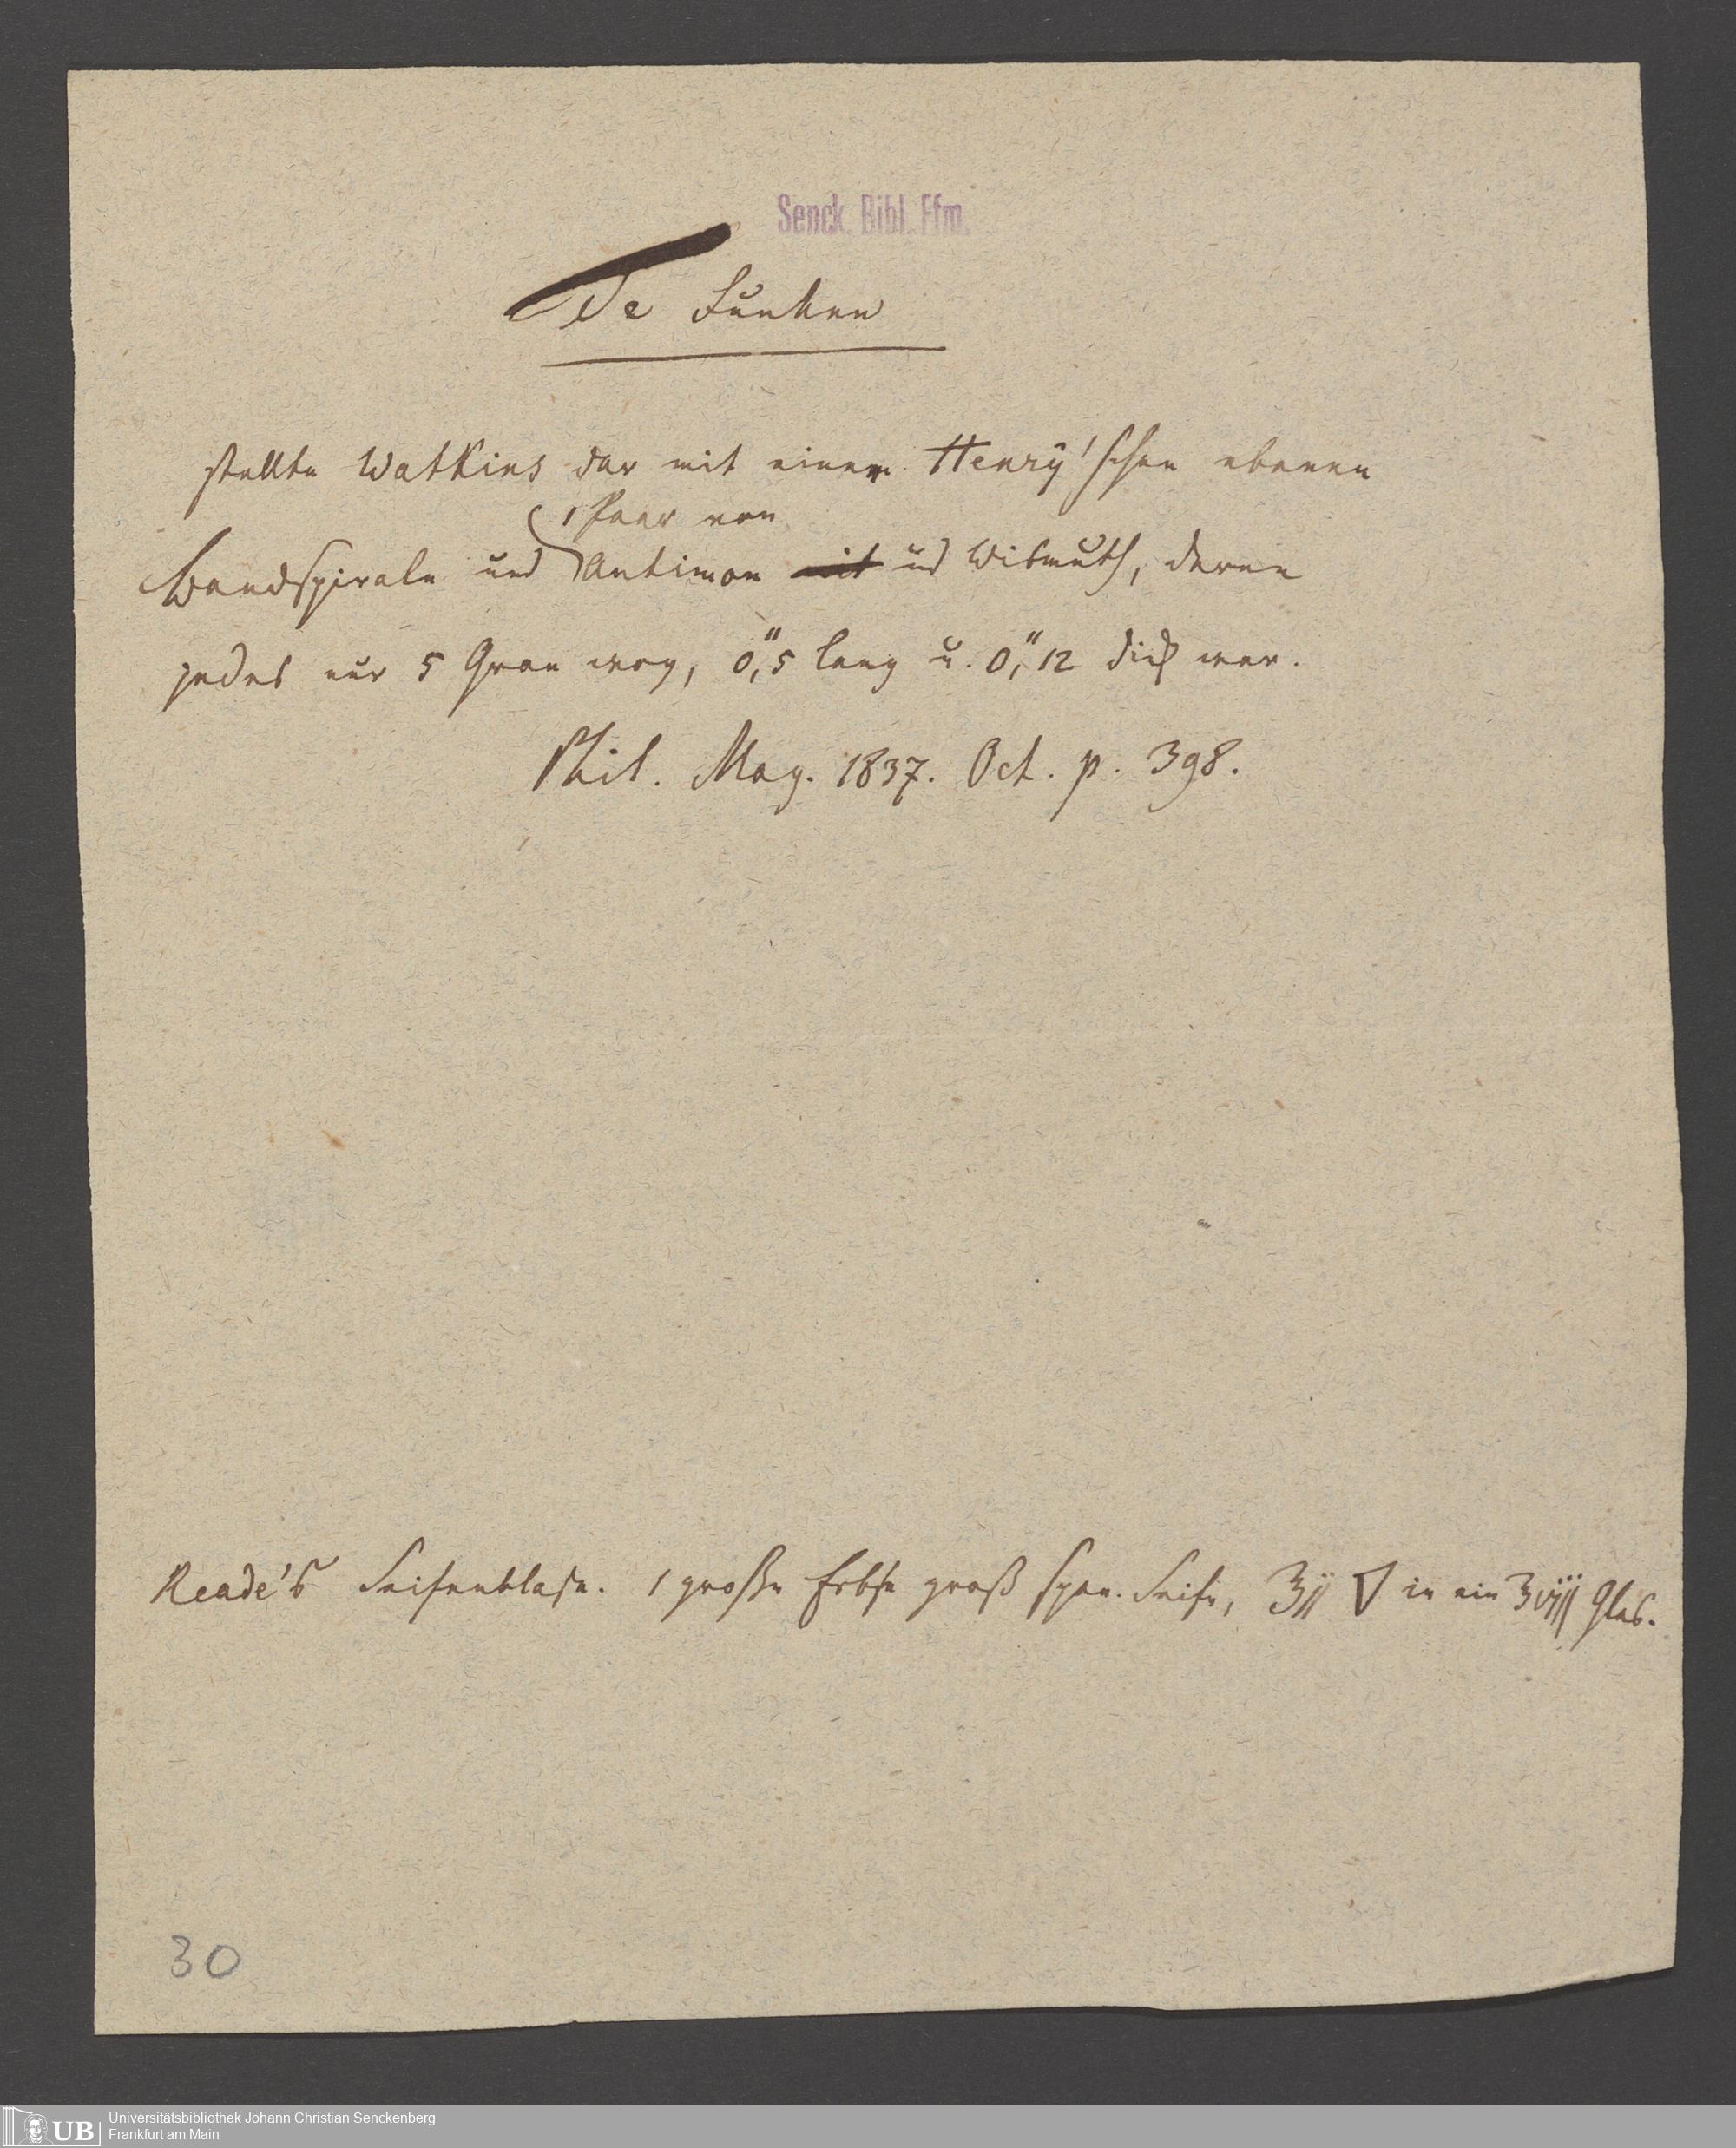 Senck. Bibl. Ffm.
De Funken
stellte Watkins dar mit einer Henry'schen ebenen
1 Paar von
Bandspirale und Antimon mit und Wismuth, deren
jedes nur 5 Gran wog, 0,"5 lang u. 0,"12 dick war.
Phil. Mag. 1837. Oct. p. 398.
Reade's Seifenblase. 1 große Erbse groß span. Seife, ℥ij 🜄 in ein ℥viij Glas.
30
UB
Universitätsbibliothek Johann Christian Senckenberg
Frankfurt am Main